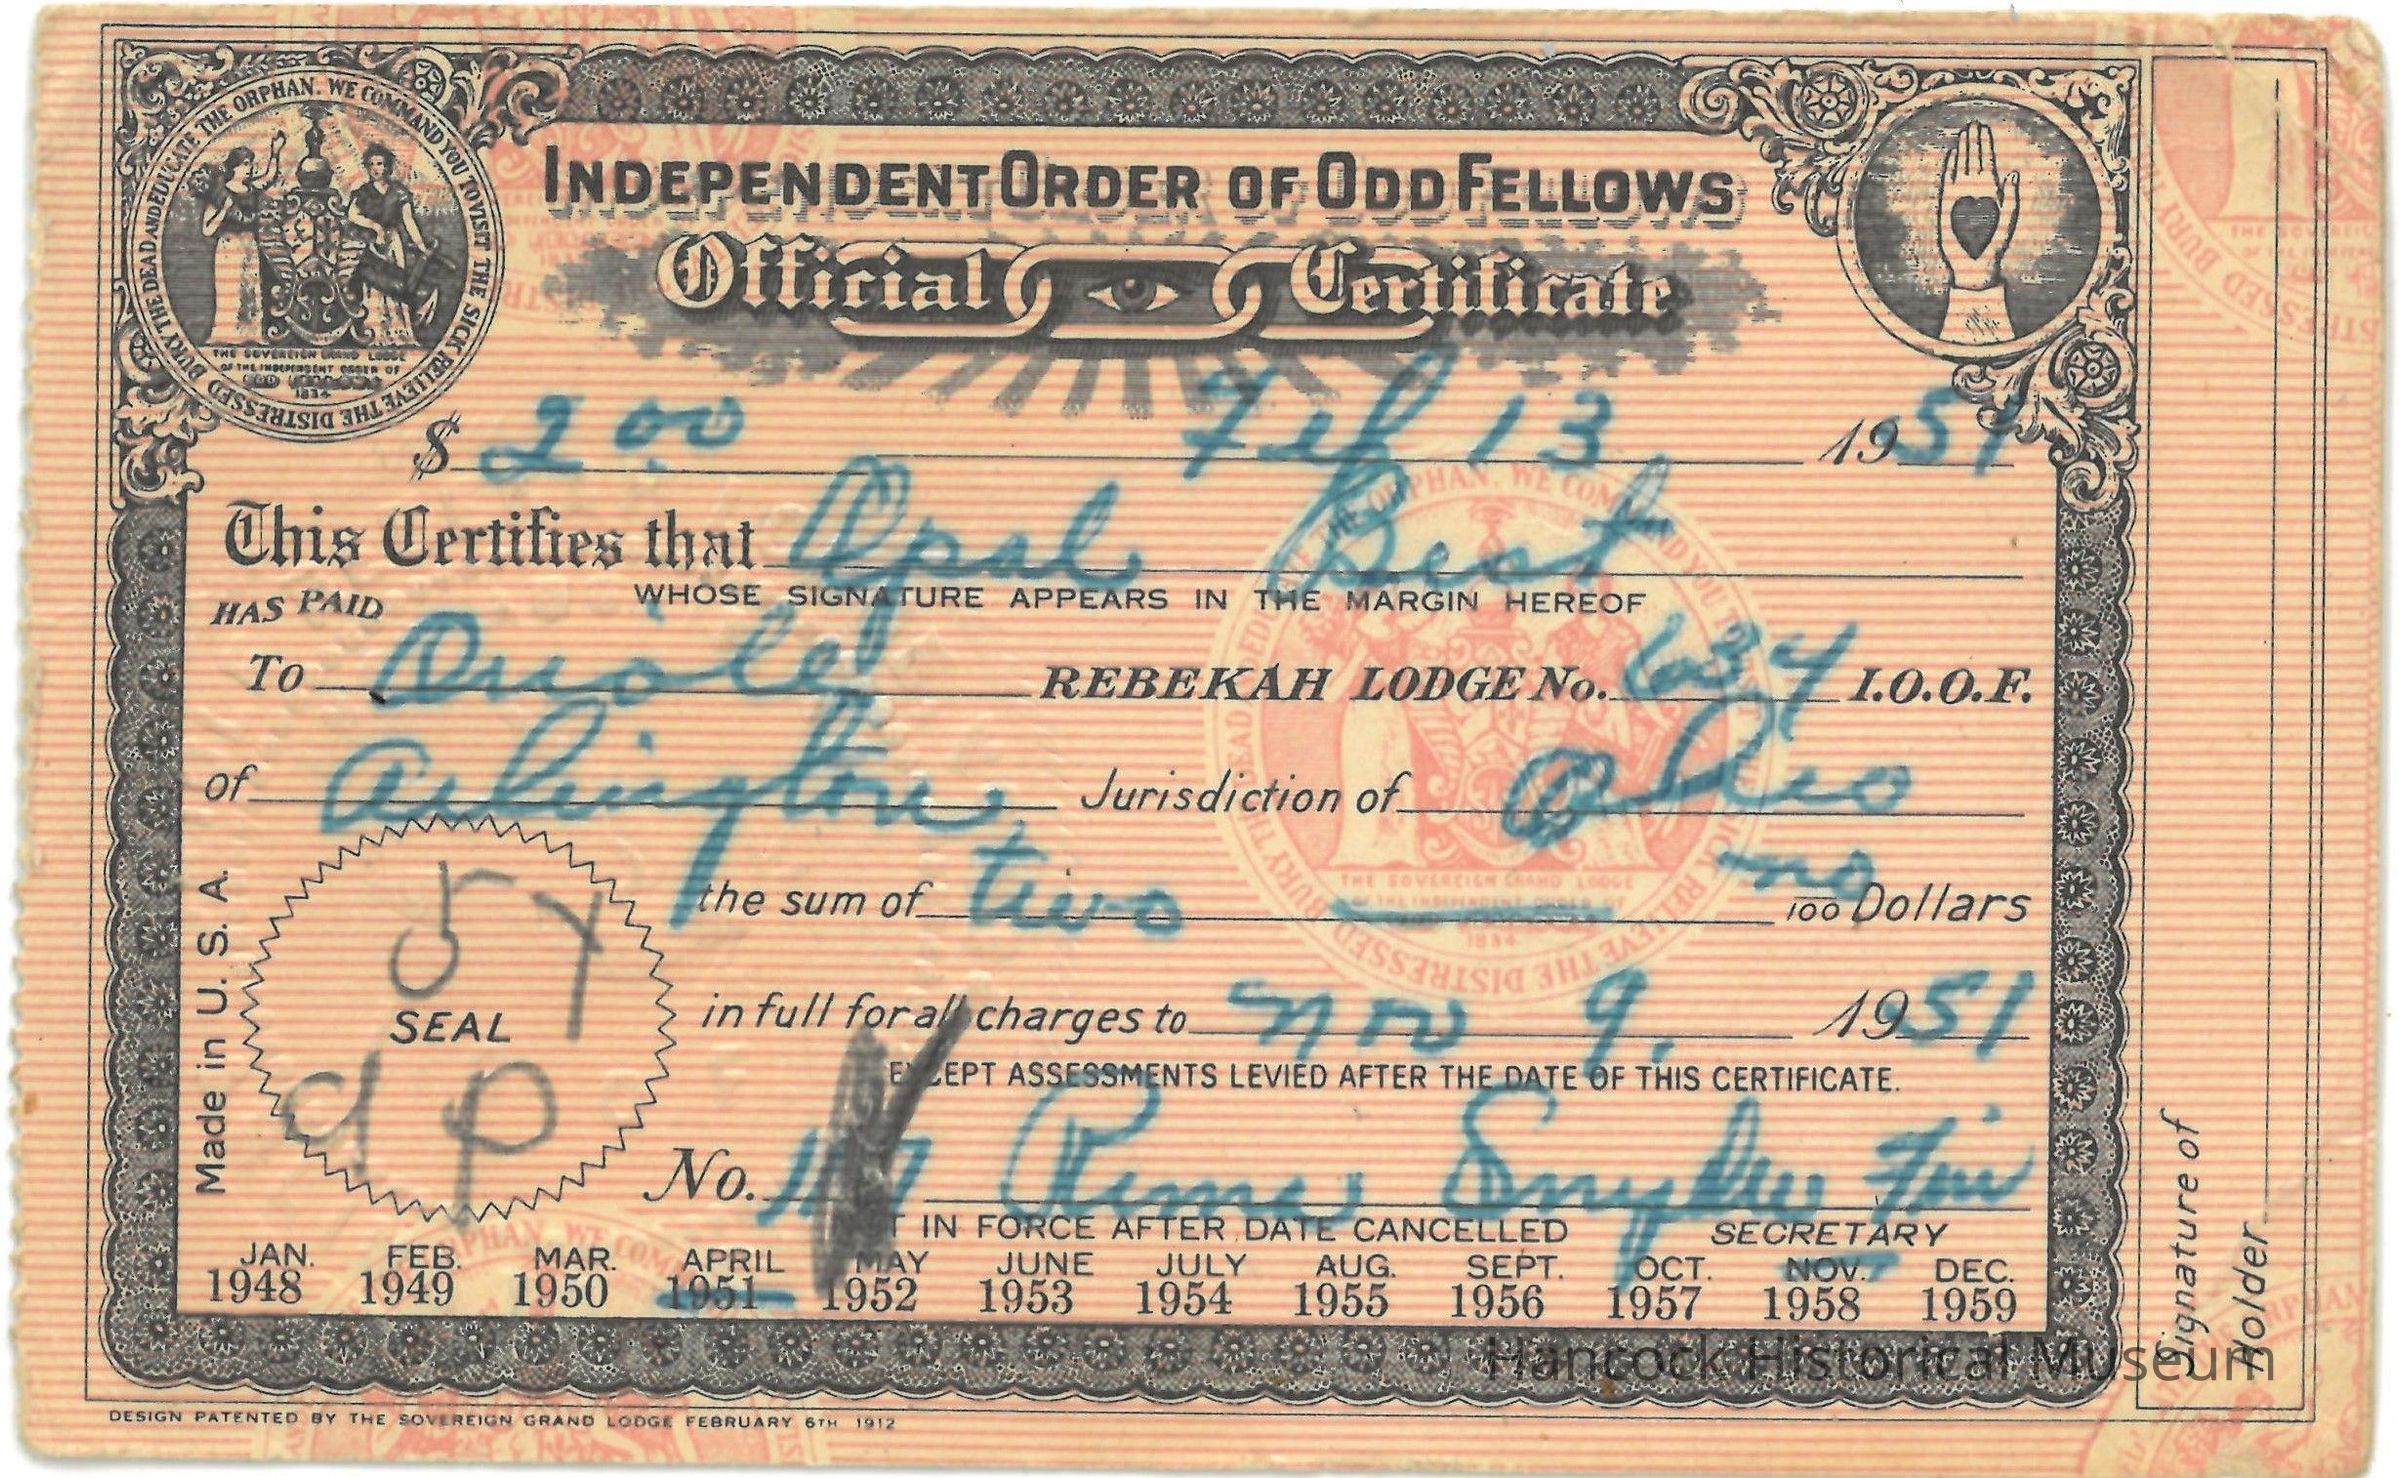 BURY THE DEAD AND EDUCATE THE ORPHAN. WE COMMAND YOU TO VISIT THE SICK RELIEVE THE DISTRESSED
THE SOVEREIGN GRAND LODGE
OF THE INDEPENDENT ORDER OF
ODD FELLOWS
1834
INDEPENDENT ORDER OF ODD FELLOWS
Official Certificate
$ 2.00 Feb 13 1951
This Certifies that Opal Best
WHOSE SIGNATURE APPEARS IN THE MARGIN HEREOF
HAS PAID
To Oriole REBEKAH LODGE No. 634 I.O.O.F.
of Arlington, Jurisdiction of Ohio
the sum of two no/100 Dollars
in full for all charges to Nov 9, 1951
EXCEPT ASSESSMENTS LEVIED AFTER THE DATE OF THIS CERTIFICATE.
SEAL
Made in U.S.A.
No. Snyder Fin
T IN FORCE AFTER DATE CANCELLED SECRETARY
JAN. FEB. MAR. APRIL MAY JUNE JULY AUG. SEPT. OCT. NOV. DEC.
1948 1949 1950 1951 1952 1953 1954 1955 1956 1957 1958 1959
Signature of
Holder
Hancock Historical Museum
DESIGN PATENTED BY THE SOVEREIGN GRAND LODGE FEBRUARY 6TH 1912